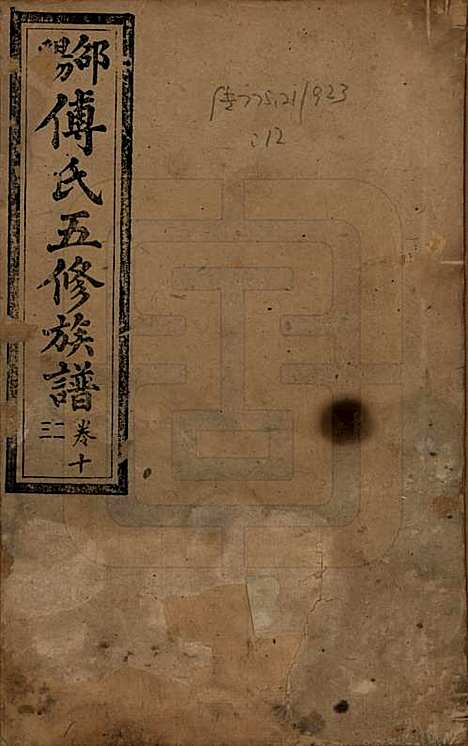 邵陽
傅氏五修族譜
卷十
二三
傳775.21/923
:12